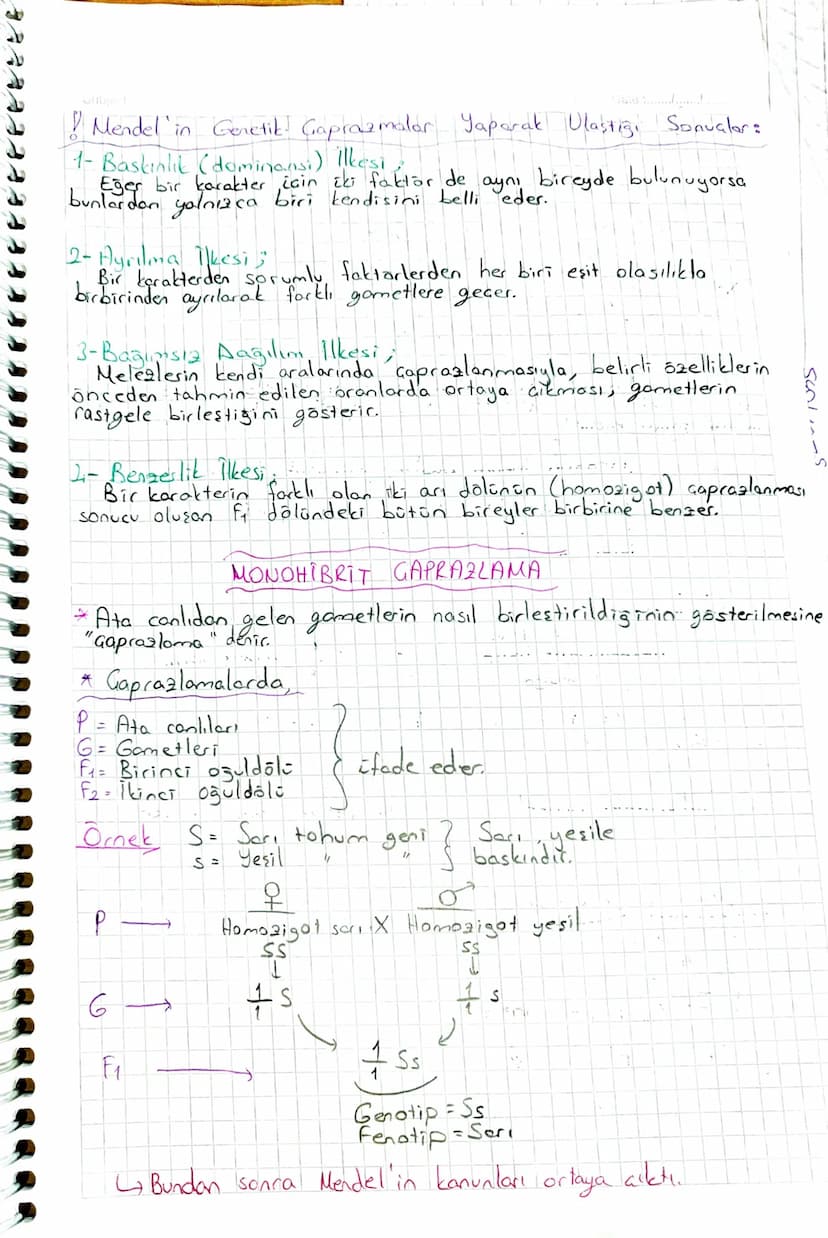 ! Mendel'in Genetik Çaprazmalar Yaparak Ulaştığı Sonuçlar:
1- Baskınlık (dominansi) İlkesi;
Eğer bir karakter için iki faktör de aynı bireyde bulunuyorsa
bunlardan yalnızca biri kendisini belli eder.
2- Ayrılma İlkesi;
Bir karakterden sorumlu faktörlerden her biri eşit olasılıkla
birbirinden ayrılarak farklı gametlere geçer.
3- Bağımsız Dağılım İlkesi;
Melezlerin kendi aralarında çaprazlanmasıyla, belirli özelliklerin
önceden tahmin edilen oranlarda ortaya çıkması, gametlerin
rastgele birleştiğini gösterir.
4- Benzerlik İlkesi;
Bir karakterin farklı olan iki arı dölünün (homozigot) çaprazlanması
sonucu oluşan F1 dölündeki bütün bireyler birbirine benzer.
MONOHİBRİT ÇAPRAZLAMA
* Ata canlıdan gelen gametlerin nasıl birleştirildiğinin gösterilmesine
"çaprazlama" denir.
* Çaprazlamalarda,
P = Ata canlıları
G = Gametleri
F1 = Birinci oğuldölü } ifade eder.
F2 = İkinci oğuldölü
Örnek S = Sarı tohum geni } Sarı, yeşile
s = Yeşil " " baskındır.
♀ ♂
P → Homozigot sarı X Homozigot yeşil
SS ss
↓ ↓
G → 1/1 S 1/1 s
F1 → 1/1 Ss
Genotip = Ss
Fenotip = Sarı
↳ Bundan sonra Mendel'in kanunları ortaya çıktı.